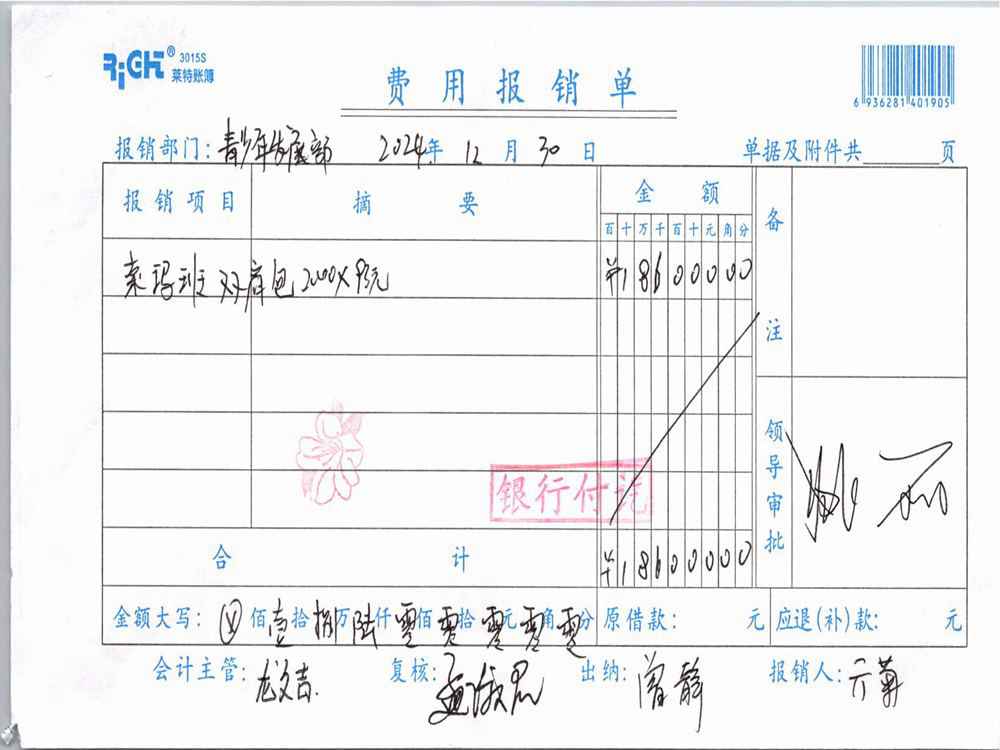 RIGHT® 3015S
莱特账簿
费用报销单
6 936281 401905
报销部门：青少年发展部 2024年 12 月 30 日 单据及附件共 页
报销项目 摘要 金额 备注
百十万千百十元角分
索玛班双肩包 2000×93元 ¥18600000
领导审批
银行付讫
合计 ¥18600000
金额大写： 佰壹拾捌万陆仟零佰零拾零元零角零分 原借款： 元 应退(补)款： 元
会计主管：龙文吉 复核： 出纳：曾静 报销人：